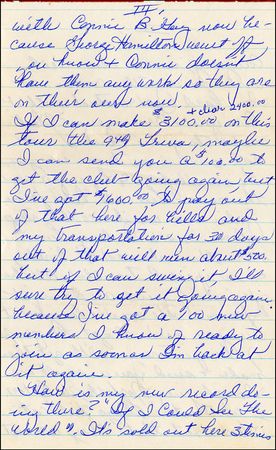 III,
with Connie B. Gay now be-
cause George Hamilton went off
you know & Connie doesn't
have them any work so they are
on their own now.
+ clear $400.00
If I can make $3100.00 on this
tour the 9th thru, maybe
I can send you a $100.00 to
get the club going again, but
I've got $1600.00 to pay out
of that here for bills and
my transportation for 30 days
out of that will run about $500.
but if I can swing it, I'll
sure try to get it going again
because I've got a 100 new
members I know of ready to
join as soon as I'm back at
it again.
How is my new record do-
ing there? "If I Could See The
World". It's sold out here 3 times